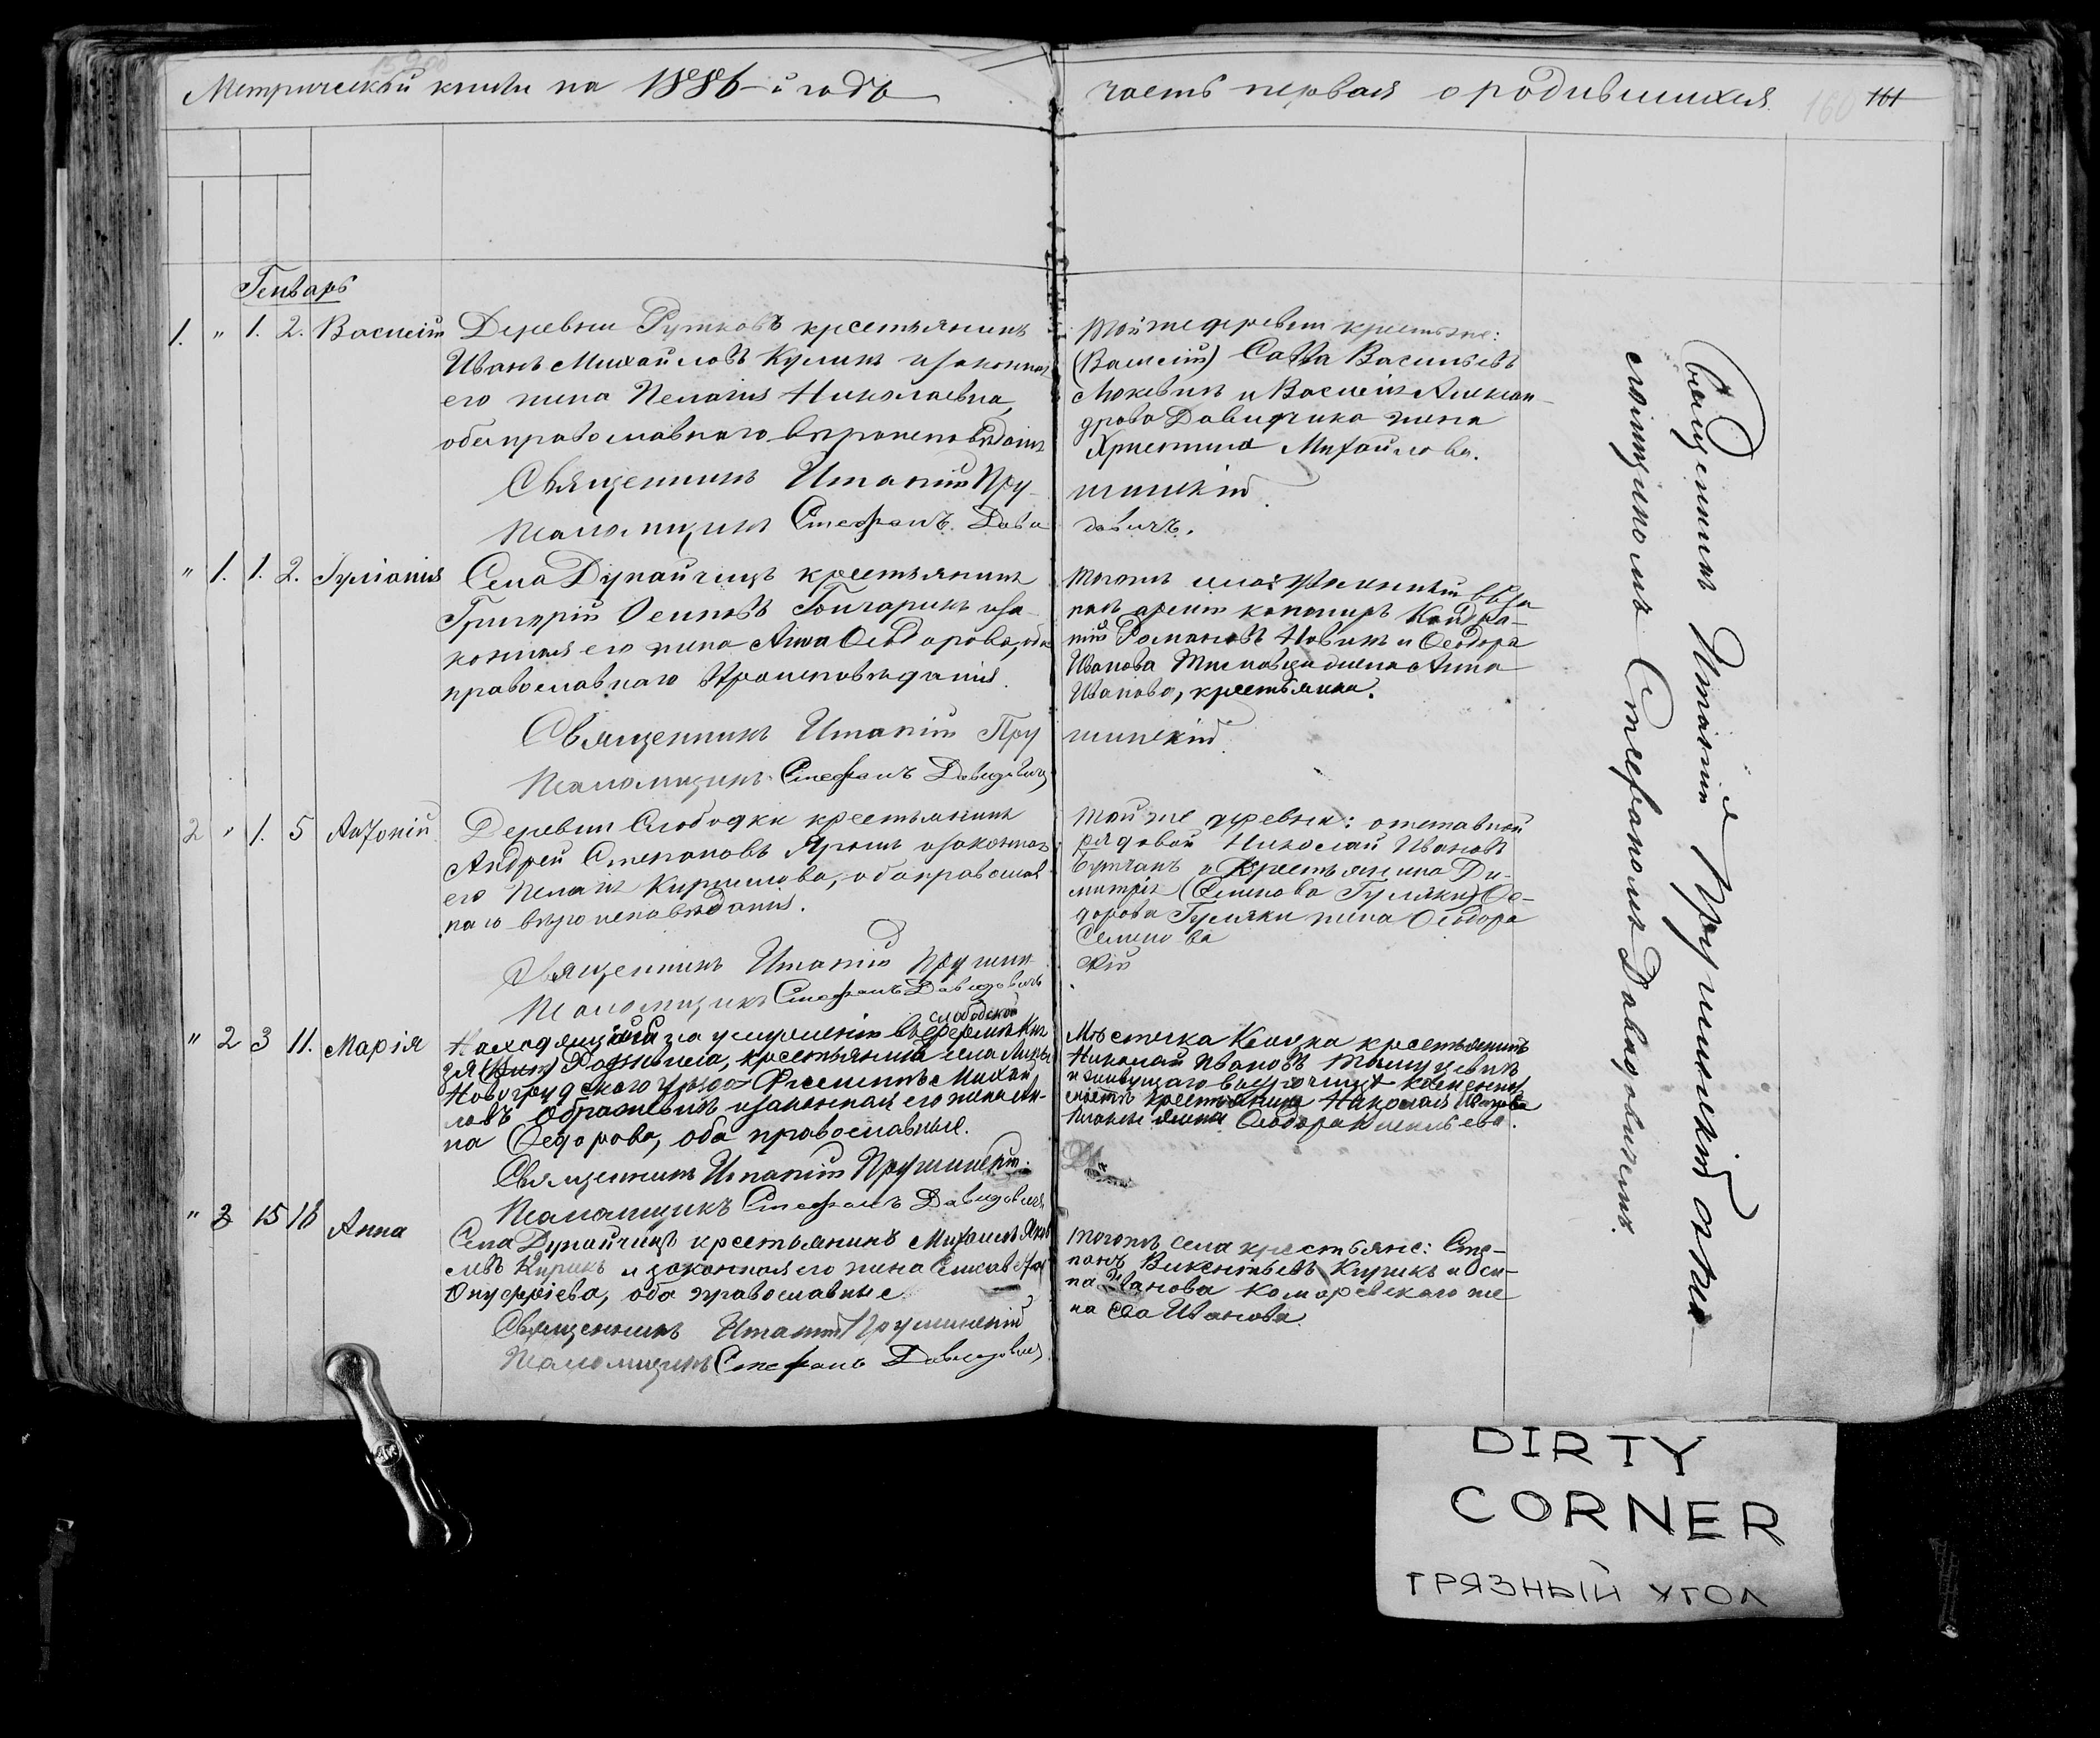 Метрической книги на 1886-й годъ
часть первая о родившихся
160 161
Генварь
1. " 1. 2. Василій
Деревни Рутковъ крестьянинъ
Иванъ Михайловъ Кулик и законная
его жена Пелагія Николаевна,
оба православнаго вѣроисповѣданія
Священникъ Ипатій Пру
Псаломщикъ Стефанъ Дави
Той же деревни крестьяне:
(Василій) Савва Васильевъ
и Василія Алексан-
дрова Давидчика жена
Христина Михайлова.
шинскій
довичъ.
" 1. 1. 2. Іуліанія
Села Дунайчицъ крестьянинъ
Григорій Осиповъ Гончарикъ и за-
конная его жена Анна Ѳеодорова, оба
православнаго вѣроисповѣданія.
Священникъ Ипатій Пру
Псаломщикъ Стефанъ Давидовичъ
Тогожъ села
Кондра-
тій Романовъ Новикъ и Ѳеодора
Иванова жена Анна
Иванова, крестьянка.
шинскій
2 " 1. 5 Антоній
Деревни Слободки крестьянинъ
Андрей Степановъ Ярошъ и законная
его Пелагія Кириллова, оба православ
наго вѣроисповѣданія.
Священникъ Ипатій Прушин
Псаломщикъ Стефанъ Давидовичъ
Той же деревни: отставной
рядовой Николай Ивановъ
и крестьянина Ди-
митрія (Семенова Гуляки) Ѳе-
дорова Гуляки жена Ѳеодора
Семенова
скій
" 2 3 11. Марія
слободской
Находящійся за услуженіи въ фермѣ Кня
зя Радзивила, крестьянинъ села Миръ
Новогрудскаго уѣзда Филиппъ Михай
ловъ и законная его жена Ан-
на Ѳедорова, оба православные.
Священникъ Ипатій Прушинскій.
Псаломщикъ Стефанъ Давидовичъ
Мѣстечка Клецка крестьянинъ
Николай Ивановъ
и живущаго въ
крестьянина Николая
жена Ѳеодора
" 3 15 18 Анна
Села Дунайчицъ крестьянинъ Михаилъ Яков
левъ Кирикъ и законная его жена Елисавета
Онуфріева, оба православные
Священникъ Ипатій Прушинскій
Псаломщикъ Стефанъ Давидовичъ
Тогожъ села крестьяне: Сте-
панъ Викентьевъ Кирикъ и Оси-
па Иванова Комаревскаго же
на Ева Иванова.
Священникъ Ипатій Прушинскій съ пса-
ломщикомъ Стефаномъ Давидовичемъ.
DIRTY
CORNER
ГРЯЗНЫЙ УГОЛ